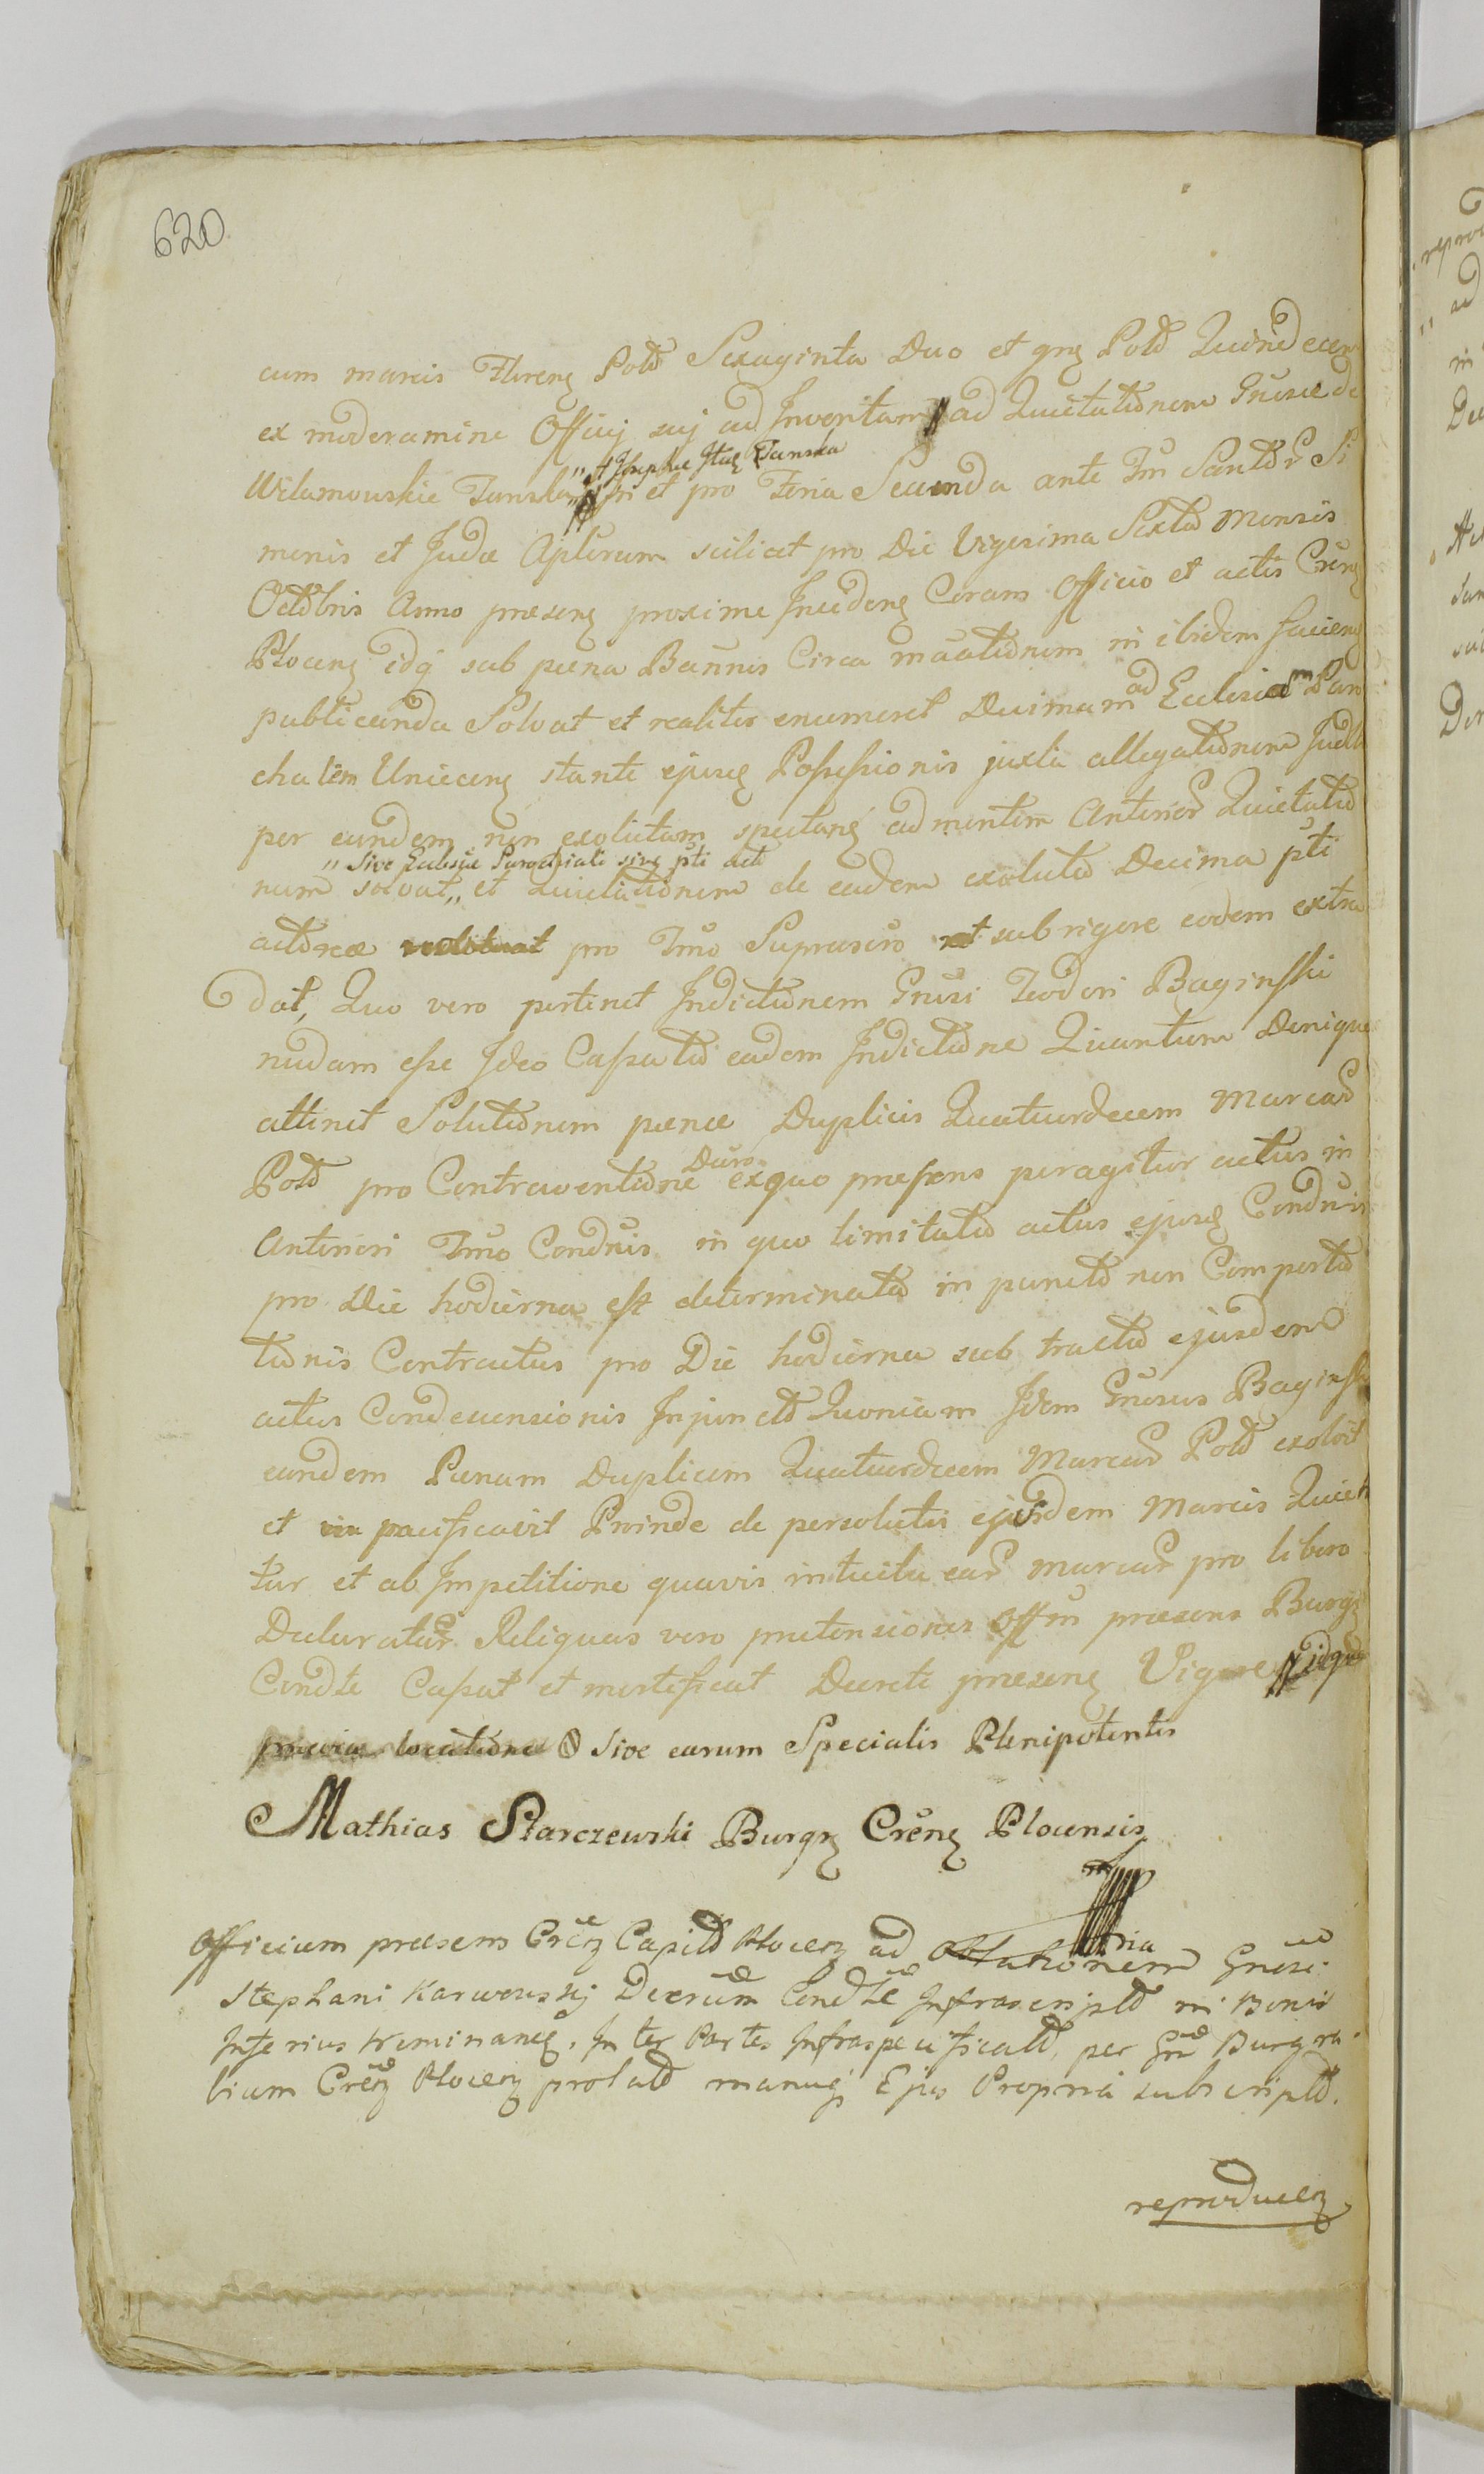 620
cum marcis Floreng Pold Sexaginta Duo et grg Pold Quindecem
ex moderamine Officij suj ad Inventam ad Quietationem Gnisae de
"et Josephae Itag Tanska
Wilamouskie Tanska et pro Feria Secunda ante Fm Sanctor Si
monis et Juda Aplorum scilicet pro Die Vigesima Sexta Mensis
Octobris Anno praeseng proxime Incideng Coram Officio et actis Creng
Ploceng idq sub poena Bannis Circa in ibidem facieng
publicanda Solvat et realiter enumeret Decimam ad Ecclesiam Paro
chalem Unieceng stante ejusg Possessionis juxta allegationem
per eundem non exolutam spectang ad mentem Anterior Quietatio
" sive Ecclesiae Parochiali sing pti acti
num solvat,, et Quietationem de eadem exoluta Decima pti
actoreae pro Tmo Suprascro et sub rigore eodem extra
dat, Quo vero pertinet Indictionem Gnisi Teodori Baginski
nudam esse Ideo Cassata eadem Indictione Quantum Denique
attinet Solutionem poenae Duplicis Quatuordecem Marcar
Pold pro Contraventione exquo praesens peragitur actus in
Anteriori Tmo Condnis in quo limitatio actus ejusg Condnis
pro Die hodierna est determinata in puncto non Comporta
tionis Contractus pro Die hodierna sub tractu ejusdem
actus Condecensionis Injuncto Quoniam Idem Gnosus Baginski
eandem Poenam Duplicem Quatuordecem Marcar Pold exolvit
et pacificavit Proinde de persolutis ejusdem Marcis Quiet
tur et ab Impetitione quavis intuitu ear Marcar pro libero
Declaratur Reliquas vero praetensiones Offm praesens Burg
Condte Cassat et mortificat Decreti praeseng Vigore idque
praevia locatione sive earum Specialis Plenipotentis
Mathias Starczewski Burgr Creng Plocensis
Officium praesens Creng Capitl Ploceng ad Oblationem Gnisi
Stephani Karwowskj Decrum Condte Infrascriptd in Bonis
Inferius nominaneg. Inter Partes Infraspecificatd, per Gnm Burgra
bium Creng Ploceng prolatd manug Ejus Propria subscriptd.
reproduceng